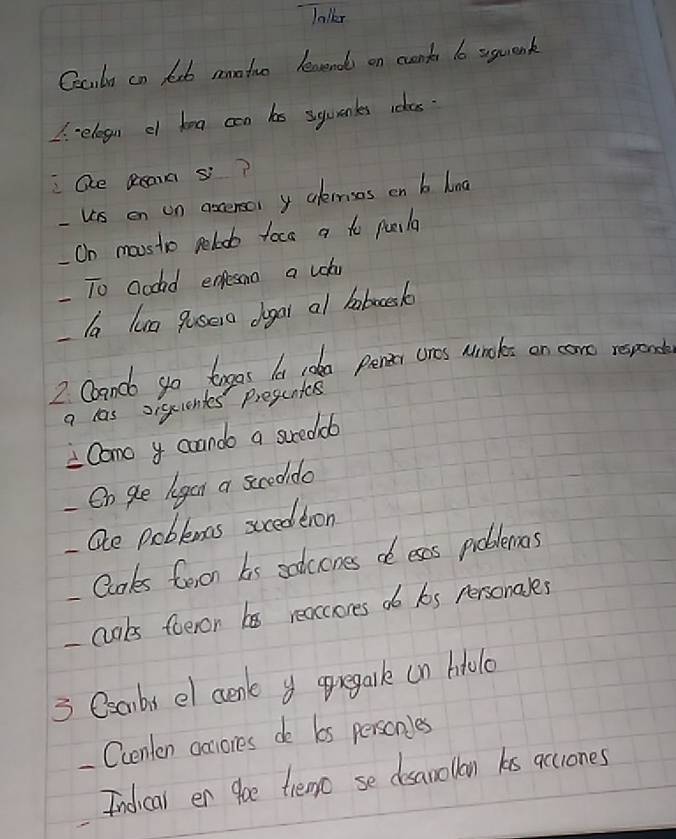 Taller
Escriba un texto narrativo teniendo en cuenta lo siguiente
1. elegir el tema con las siguientes ideas.
¿ Que pasaria si ?
- Vas en un ascensor y aterrisas en la luna
- Un moustro peludo toca a tu puerta
- Tu ciudad enpesara a
- la luna quisera jugar al baloncesto
2. Coando ya tengas la idea penzar unos Minotos en como responder
a las siguientes preguntas
¿ Como y coando a sucedido
- En que lugar a sucedido
- Que problemas sucederon
- Cuales fueron las soluciones de esos problemas
- cuals fueron las reacciones de los personajes
3 Escribir el cuento y agregarle un titulo
- Cuenten acciones de los personjes
- Indicar en que tiempo se desarrollan las acciones